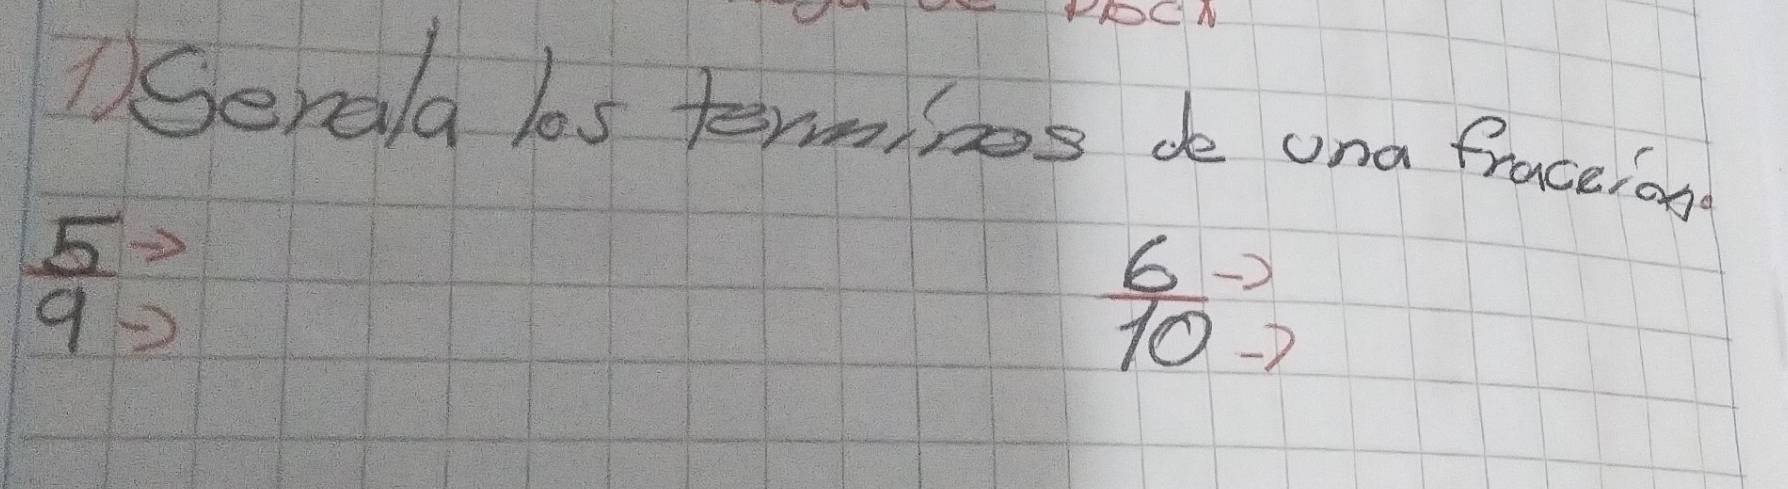 1) Senala los terminos de una fracción.
5 →
9 →
6 →
10 →